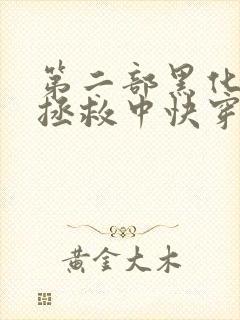 第二部黑化
拯救中快穿
黄金大木